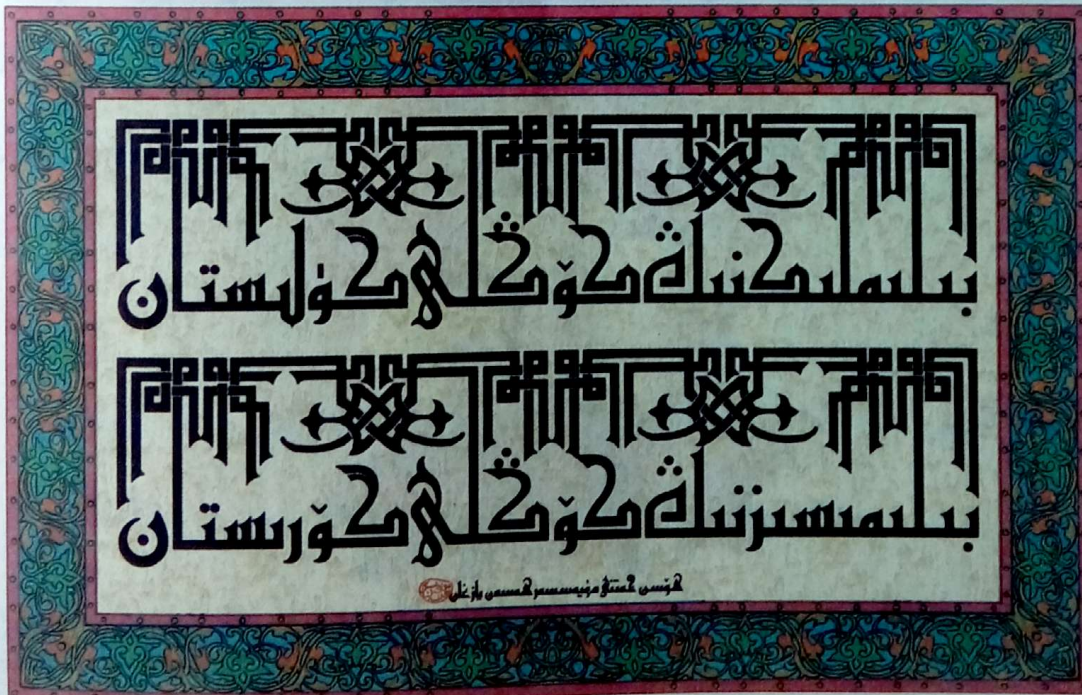 بىلىملىكنىڭ كۆڭلى گۈلىستان
بىلىمسىزنىڭ كۆڭلى گۆرىستان